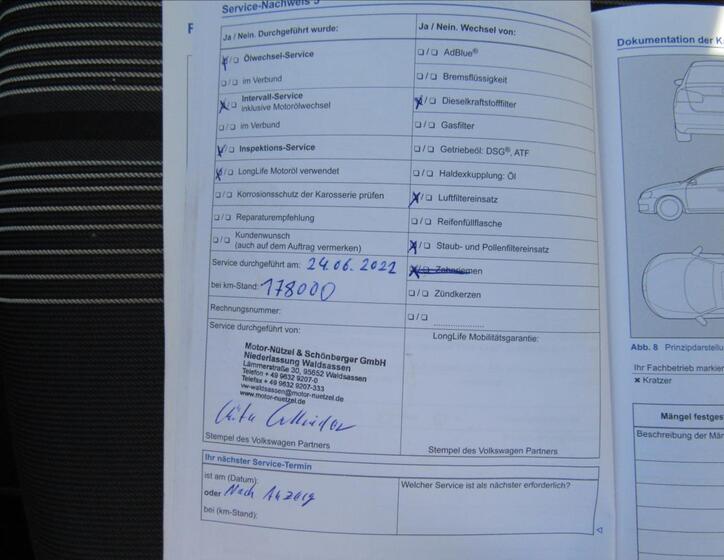 Service-Nachweis
Ja / Nein. Durchgeführt wurde:
Ölwechsel-Service
im Verbund
Intervall-Service
inklusive Motorölwechsel
im Verbund
Inspektions-Service
LongLife Motoröl verwendet
Korrosionsschutz der Karosserie prüfen
Reparaturempfehlung
Kundenwunsch
(auch auf dem Auftrag vermerken)
Service durchgeführt am: 24.06.2021
bei km-Stand: 178000
Rechnungsnummer:
Service durchgeführt von:
Motor-Nützel & Schönberger GmbH
Niederlassung Waldsassen
Lämmerstraße 30, 95652 Waldsassen
Telefon + 49 9632 9207-0
Telefax + 49 9632 9207-333
vw-waldsassen@motor-nuetzel.de
www.motor-nuetzel.de
Stempel des Volkswagen Partners
Ja / Nein. Wechsel von:
AdBlue®
Bremsflüssigkeit
Dieselkraftstofffilter
Gasfilter
Getriebeöl: DSG®, ATF
Haldexkupplung: Öl
Luftfiltereinsatz
Reifenfüllflasche
Staub- und Pollenfiltereinsatz
Zahnriemen
Zündkerzen
LongLife Mobilitätsgarantie:
Stempel des Volkswagen Partners
Ihr nächster Service-Termin
ist am (Datum):
oder Nach Anzeig
bei (km-Stand):
Welcher Service ist als nächster erforderlich?
Dokumentation der K
Abb. 8 Prinzipdarstellu
Ihr Fachbetrieb markier
× Kratzer
Mängel festges
Beschreibung der Män